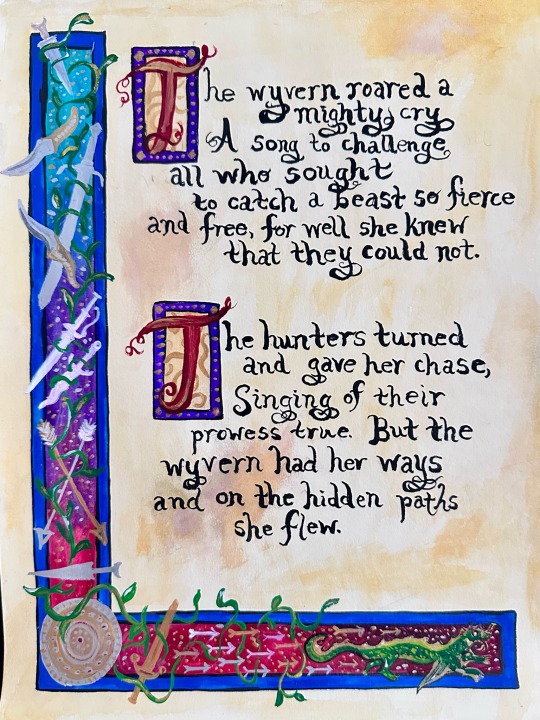 The wyvern roared a
mighty cry
A song to challenge
all who sought
to catch a beast so fierce
and free, for well she knew
that they could not.
The hunters turned
and gave her chase,
Singing of their
prowess true. But the
wyvern had her ways
and on the hidden paths
she flew.